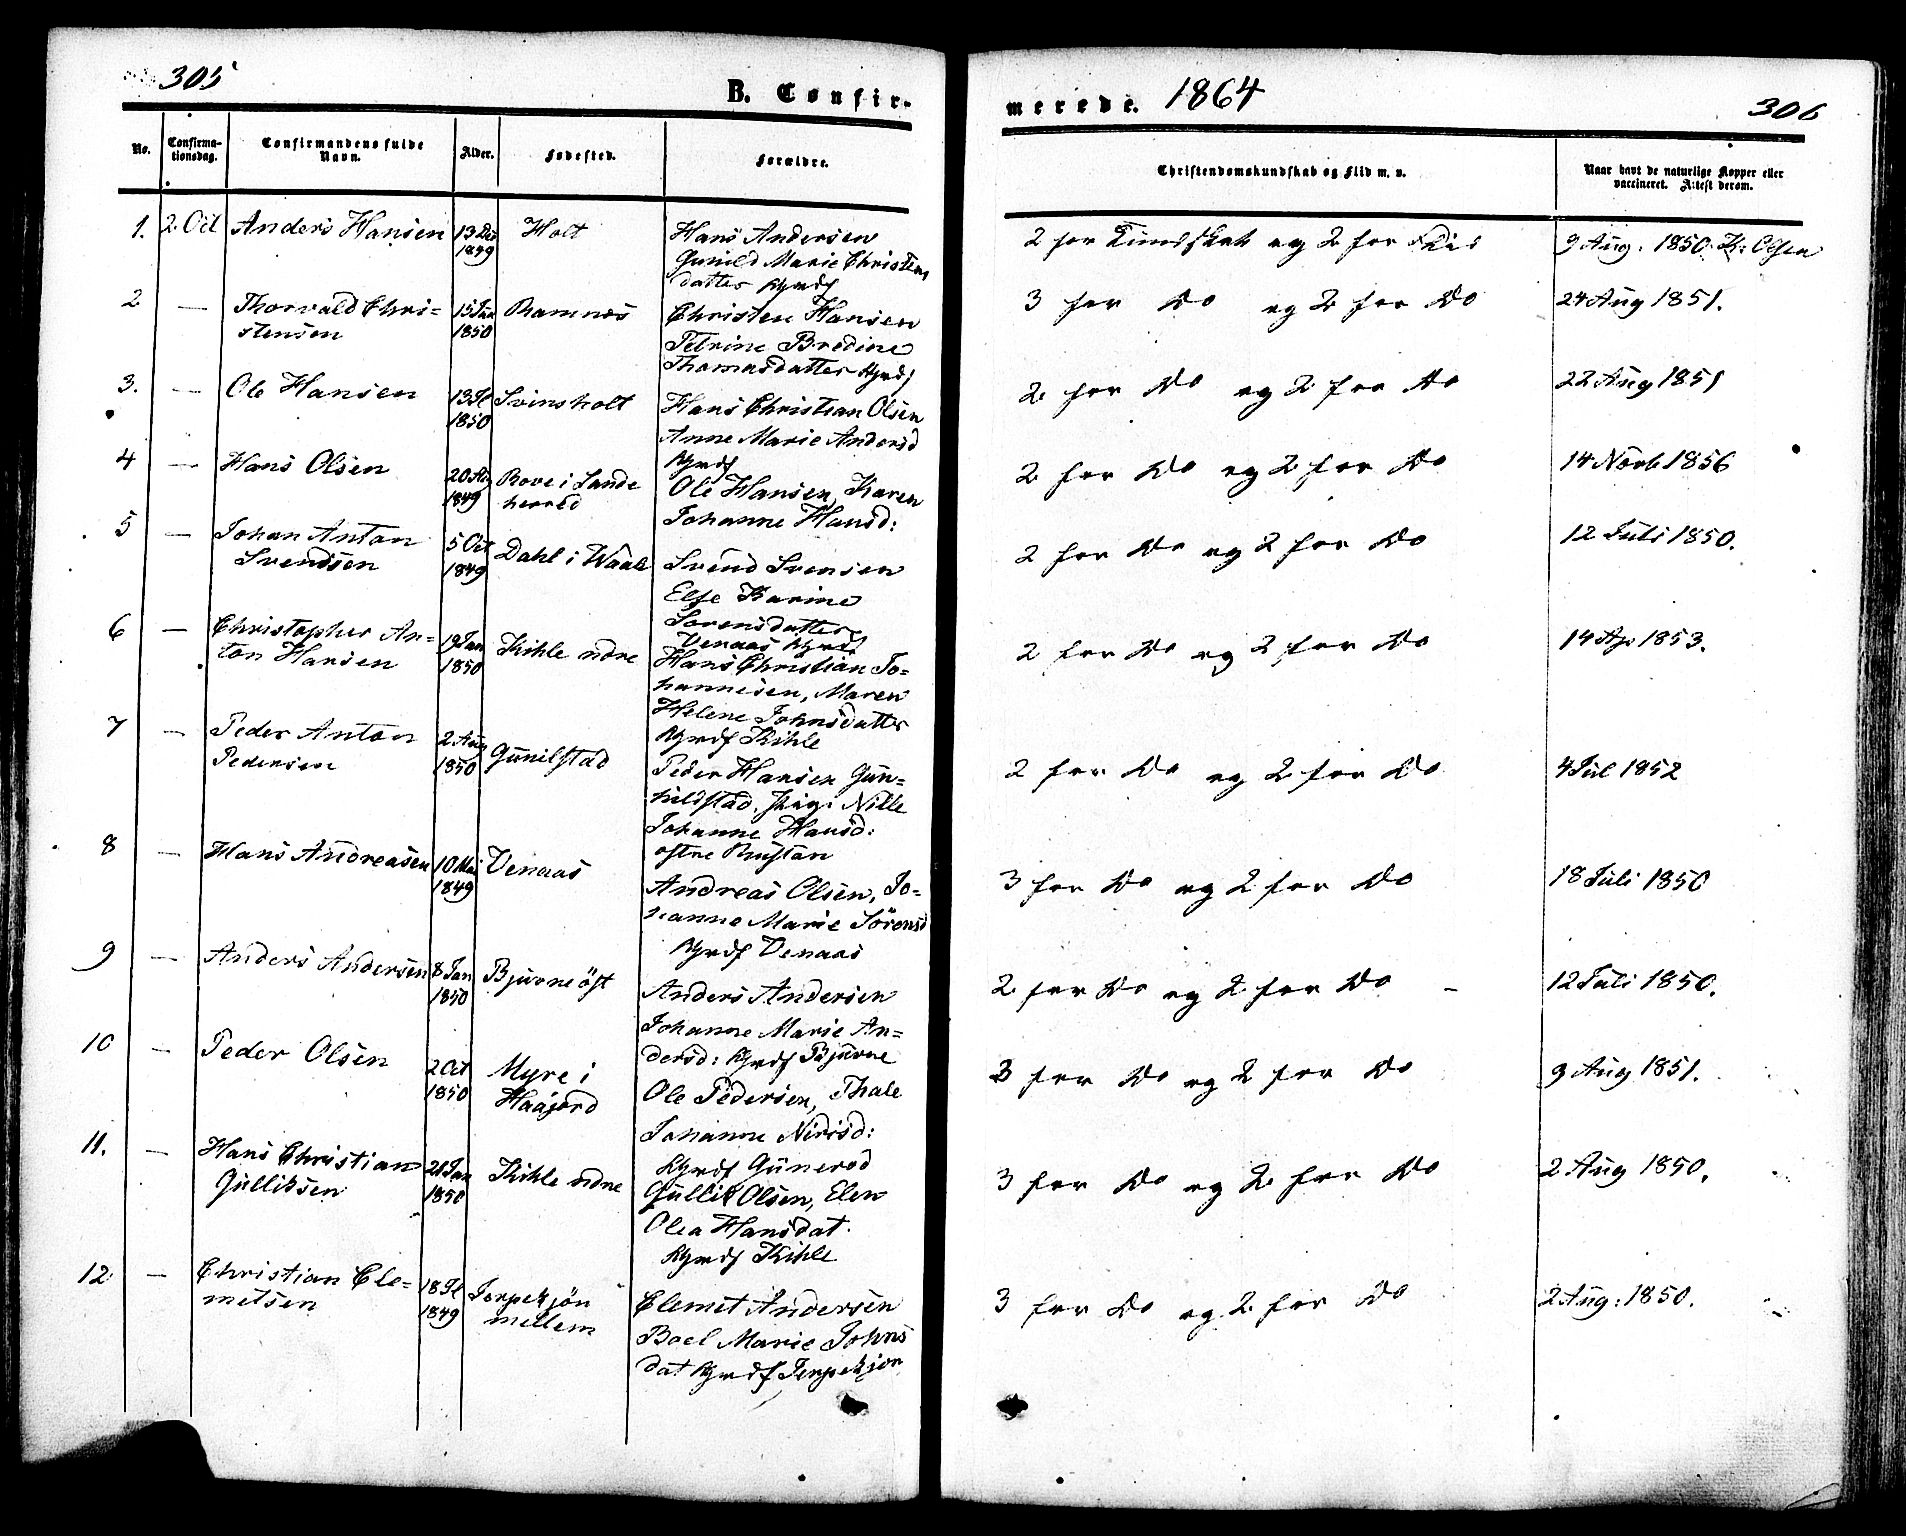 305
B. Confir-
No.
Confirma-
tionsdag.
Confirmandens fulde
Navn.
Alder.
Fødested.
Forældre.
1. 2 Oct Anders Hansen 13 Dec 1849 Holt
Hans Andersen
Gunild Marie Christens
datter
2 — Thorvald Chri-
stensen 15 Jan 1850 Ramnes
Christen Hansen
Petrine Bredine
Thomasdatter
3. — Ole Hansen 13 Jl 1850 Svinsholt
Hans Christian Olsen
Anne Marie Andersd
4 — Hans Olsen 1849 Bove i Sande
herred
Ole Hansen, Karen
Johanne Hansd:
5 — Johan Anton
Svendsen 5 Oct 1849 Dahl i Waale
Svend Svensen
Else Karine
Sørensdatter
Venaas
6 — Christopher An=
ton Hansen 19 Jan 1850 Kihle ndre
Hans Christian Jo=
hannesen, Maren
Helene Johnsdatter
Kihle
7 — Peder Anton
Pedersen 2 Aug 1850 Gunilstad
Peder Hansen Gun=
hildstad, Nille
Johanne Hansd:
østre Rustan
8 — Hans Andreasen 10 Mai 1849 Venaas
Andreas Olsen, Jo=
hanne Marie Sörensd
Venaas
9 — Anders Andersen 8 Jan 1850 Bjurne öst
Anders Andersen
Johanne Marie An=
dersd: Bjurne
10 — Peder Olsen 2 Oct 1850 Myre i
Haajord
Ole Pedersen, Thale
Johanne Nirisd:
Gunerød
11. — Hans Christian
Gulliksen 21 Jan 1850 Kihle ndre
Gullik Olsen, Elen
Olea Hansdat.
Kihle
12. — Christian Cle=
metsen 18 Jl 1849 Jerpekjön
mellem
Clemet Andersen
Boel Marie Johns
dat Jerpekjøn
merede. 1864
306
Christendomskundskab og Flid m. v.
Naar havt de naturlige Kopper eller
vaccineret. Attest derom.
2 for Kundskab og 2 for Flid 9 Aug: 1850. K: Olsen
3 for Do og 2 for Do 24 Aug 1851.
2 for Do og 2 for Do 22 Aug 1851
2 for Do og 2 for Do 14 Novb 1856
2 for Do og 2 for Do 12 Juli 1850.
2 for Do og 2 for Do 14 Ap 1853.
2 for Do og 2 for Do 4 Jul 1852
3 for Do og 2 for Do 18 Juli 1850
2 for Do og 2 for Do 12 Juli 1850.
3 for Do og 2 for Do 9 Aug 1851.
3 for Do og 2 for Do 2 Aug 1850.
3 for Do og 2 for Do 2 Aug: 1850.